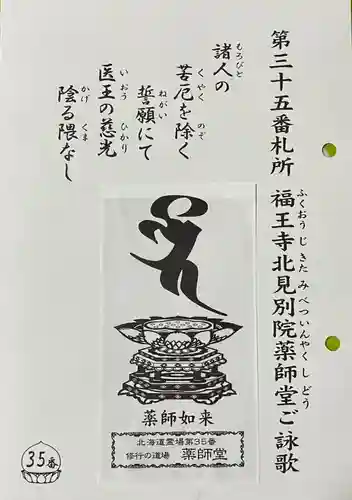 第三十五番札所 福王寺北見別院薬師堂ご詠歌
ふくおう じ きた み べついんやく し どう
諸人の
もろびと
苦厄を除く
くやく のぞ
誓願にて
ねがい
医王の慈光
いおう ひかり
陰る隈なし
かげ くま
薬師如来
北海道霊場第35番
修行の道場 薬師堂
35番